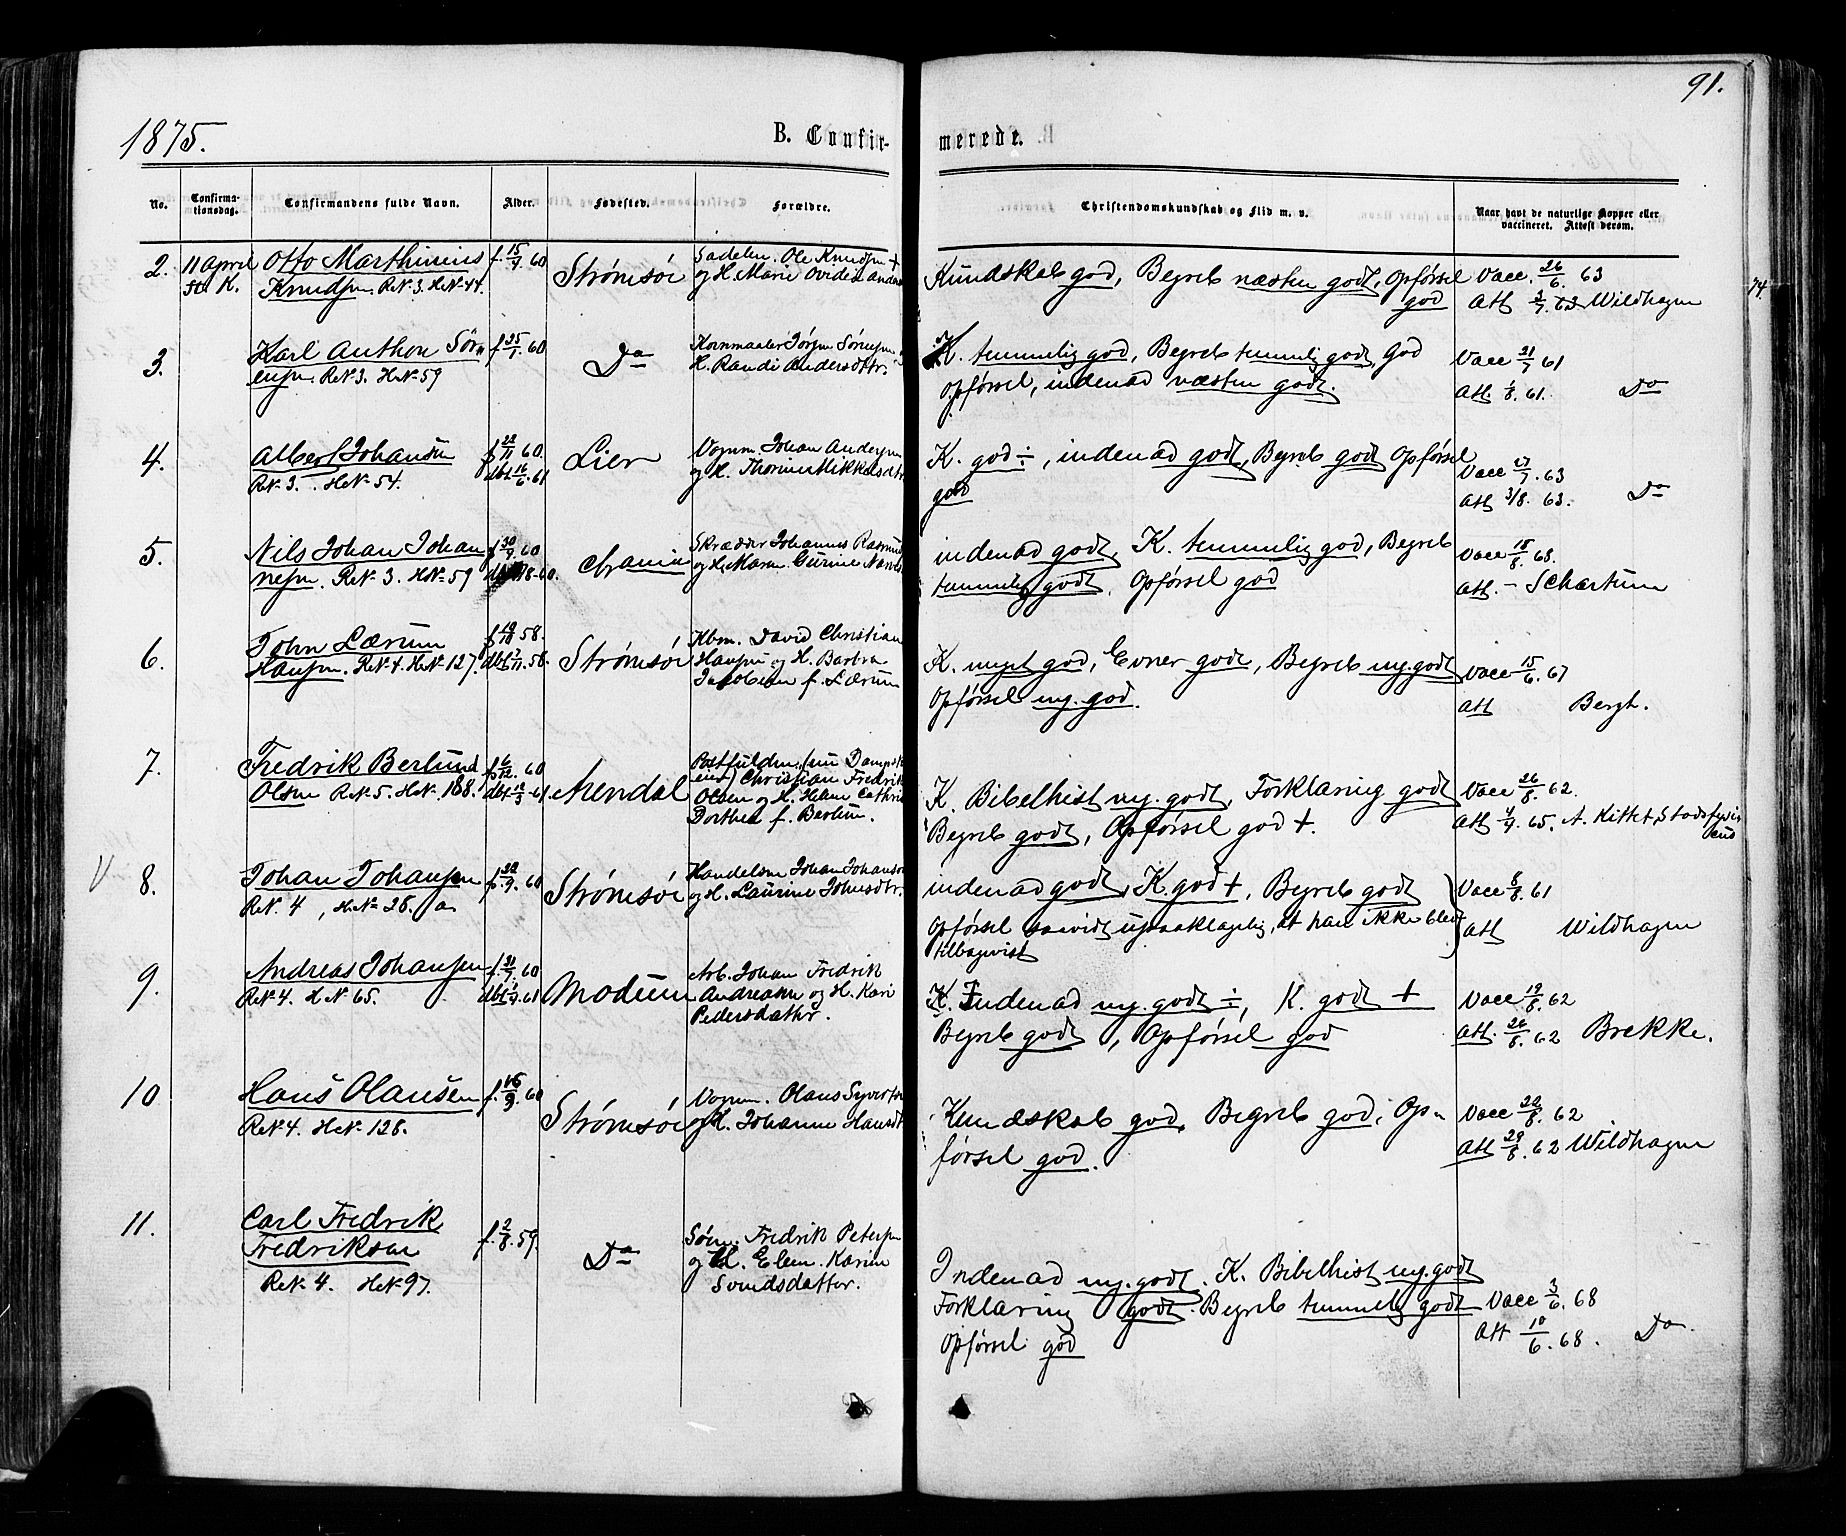 91.
1875.
B. Confirmerede.
No.
Confirma-
tionsdag.
Confirmandens fulde Navn.
Alder.
Fødested.
Forældre.
Christendomskundskab og Flid m. v.
Naar havt de naturlige Kopper eller
vaccineret. Attest derom.
2. 11 April
K.
Otto Marthinius
Knudsen. ReN. 3. HeN. 44.
f. 15/9 60
Strømsöe
Sadelm. Ole Knudsen +
og H. Marie Ovidia
Kundskab god, Begreb næsten godt, Opførsel
god
Vacc. 26/6. 63
Att 3/7. 63 Wildhagen
74.
3.
Karl Anthon Sör-
ensen. ReN. 3. HeN. 59
60
Do
Kornmaaler Jörgen Sörensen
H. Randi Andersdttr.
K. temmelig god, Begreb temmelig godt, God
Opførsel, indenad næsten godt.
Vacc 21/7 61
Att. 1/8. 61. Do
4.
Albert Johansen
ReN. 3. HeN. 54.
f 22/11 60.
dbt 16/6. 61
Lier
Vognm. Johan Andersen
og H. Thorine Mikkelsdtr
K. god ÷, indenad godt, Begreb godt Opførsel
god
Vacc 27/7. 63
Att 3/8. 63. Do
5.
Nils Johan Johan-
nesen. ReN. 3. HeN. 59
f 30/9. 60
Chrania
Skrædder Johannes
og H. Maren Gurine
indenad godt, K. temmelig god, Begreb
temmelig godt, Opførsel god
Vacc 15/8 68.
Att. – Schartum
6.
John Lærum
Hansen. ReN. 4. HeN. 127.
f 19/10 58.
dbt 7/11. 58.
Strømsöe
Kbm. David Christian
Hansen og H. Barbra
Jacobine f. Lærum
K. meget god, Evner gode, Begreb mg. godt
Opførsel mg. god.
Vacc 15/6. 67
Att Bergh.
7.
Fredrik Berlund
Olsen ReN. 5. HeN. 188.
f 6/12. 60
dbt. 12/3. 61
Arendal
Christian Fredrik
Olsen og H. Helene Cathrine
Dorthea f. Berlun.
K. Bibelhist mg. godt, Forklaring godt
Begreb godt, Opførsel god +.
Vacc 26/8. 62.
Att 4/9. 65. A. Kittel, Stadsfysi-
cus
V 8.
Johan Johansen
ReN. 4, HeN. 28. a
f. 22/9. 60
Strømsöe
Handelsm Johan Johansen
og H. Laurine Johnsdtr.
indenad godt, K. god +, Begreb godt
Opførsel saavidt upaaklagelig, at han ikke blev
tilbagevist
Vacc 6/8. 61
Att Wildhagen
9.
Andreas Johansen
ReN. 4. H N. 65.
f. 31/7. 60
dbt 1/4. 61
Modum
Arb. Johan Fredrik
Andreasen og H. Kari
Pedersdatter.
K. Indenad mg. godt ÷, K. godt +
Begreb godt, Opførsel god
Vacc 19/8. 62
Att. 26/8. 62 Brekke.
10
Hans Olausen
ReN. 4. HeN. 128.
f. 16/9. 60
Strømsöe
Vognm. Olaus Syvertsen
og H. Johanne Hansdt
Kundskab god, Begreb god, Op-
førsel god.
Vacc 22/8. 62
Att 29/8. 62 Wildhagen
11.
Carl Fredrik
Fredriksen
ReN. 4. HeN. 97.
f. 2/8. 59.
Do
Söm. Fredrik Petersen
og H. Elen Karine
Svendsdatter.
Indenad mg. godt. K. Bibelhist mg. godt
Forklaring godt. Begreb temmelig godt
Opførsel god
Vacc 3/6. 68
Att 10/6. 68. Do.